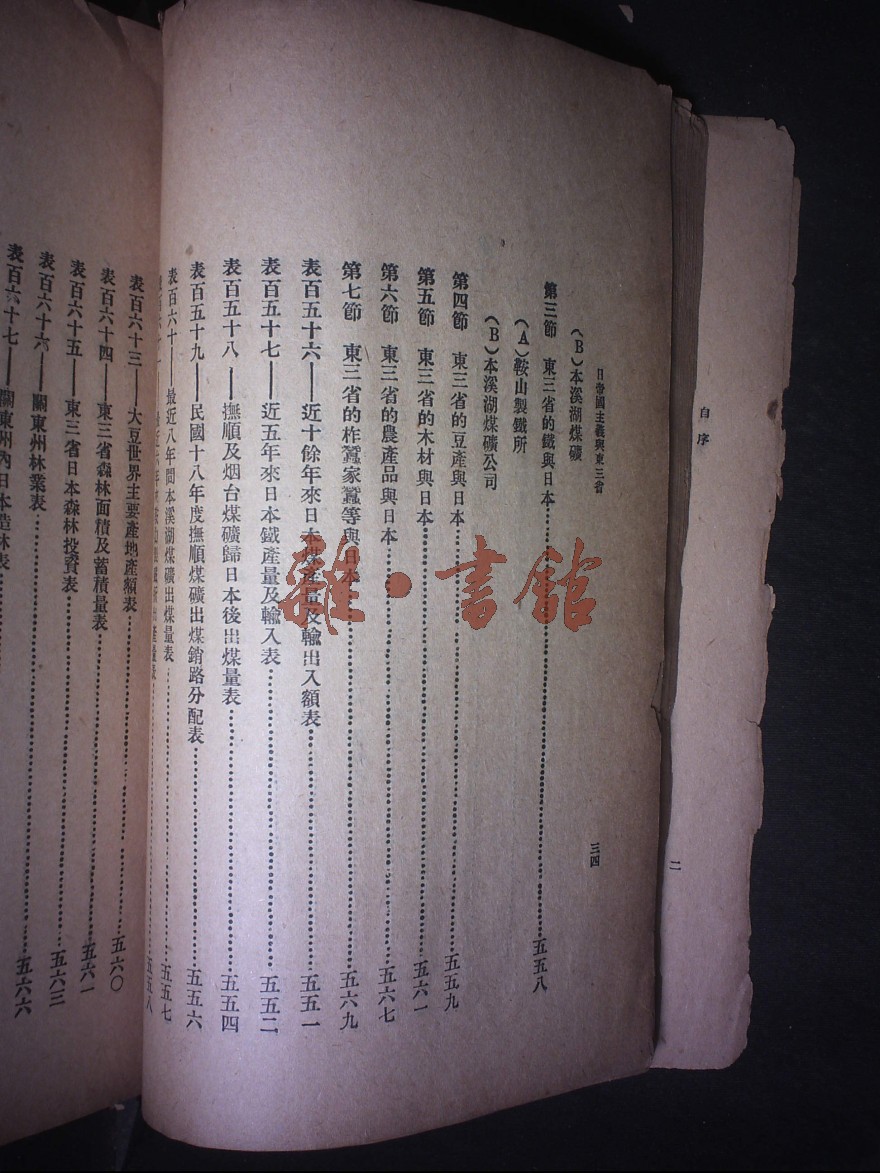 自序
二
日帝國主義與東三省
三四
(B)本溪湖煤礦
第三節 東三省的鐵與日本……五五八
(A)鞍山製鐵所
(B)本溪湖煤礦公司
第四節 東三省的豆產與日本……五五九
第五節 東三省的木材與日本……五六一
第六節 東三省的農產品與日本……五六七
第七節 東三省的柞蠶家蠶等與日本……五六九
表百五十六——近十餘年來日本煤產量及輸出入額表……五五一
表百五十七——近五年來日本鐵產量及輸入表……五五二
表百五十八——撫順及烟台煤礦歸日本後出煤量表……五五四
表百五十九——民國十八年度撫順煤礦出煤銷路分配表……五五六
表百六十——最近八年間本溪湖煤礦出煤量表……五五七
五五八
表百六十三——大豆世界主要產地產額表……五六〇
表百六十四——東三省森林面積及蓄積量表……五六一
表百六十五——東三省日本森林投資表……五六三
表百六十六——關東州林業表……五六六
表百六十七——關東州內日本造林表
雜·書館